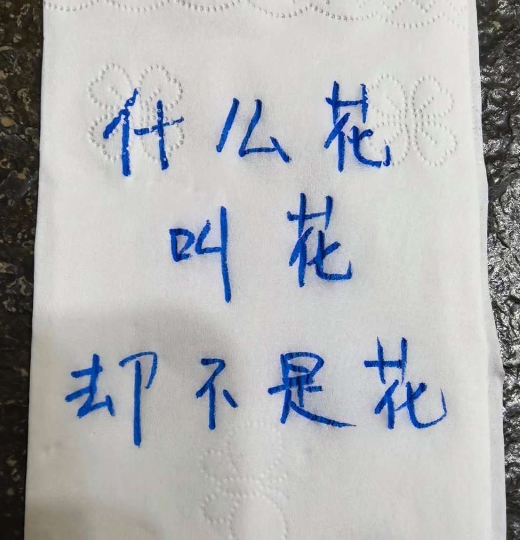 什么花
叫花
却不是花